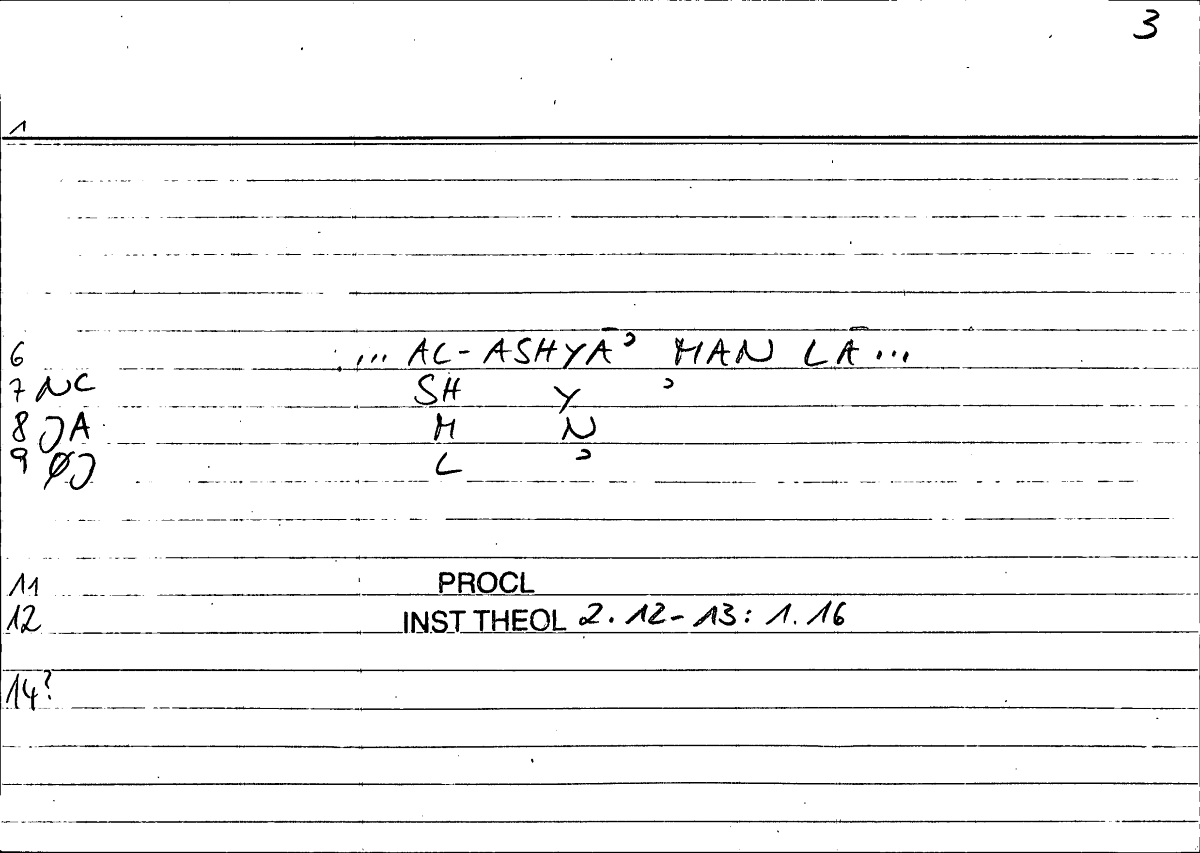 3
1
6 ... AL-ASHYĀʾ MAN LĀ ...
7 NC SH Y ʾ
8 JA M N
9 ØJ L ʾ
11 PROCL
12 INST THEOL 2.12-13: 1.16
14?